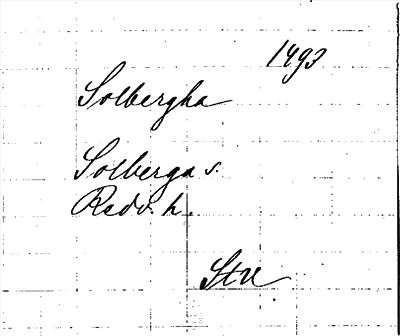 1493
Solbergha
Solberga s.
Redv. h.
Stu